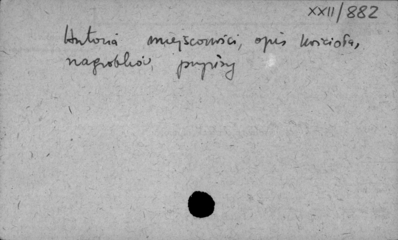 XXII/882
Historia miejscowości, opis kościoła,
nagrobków, przypisy